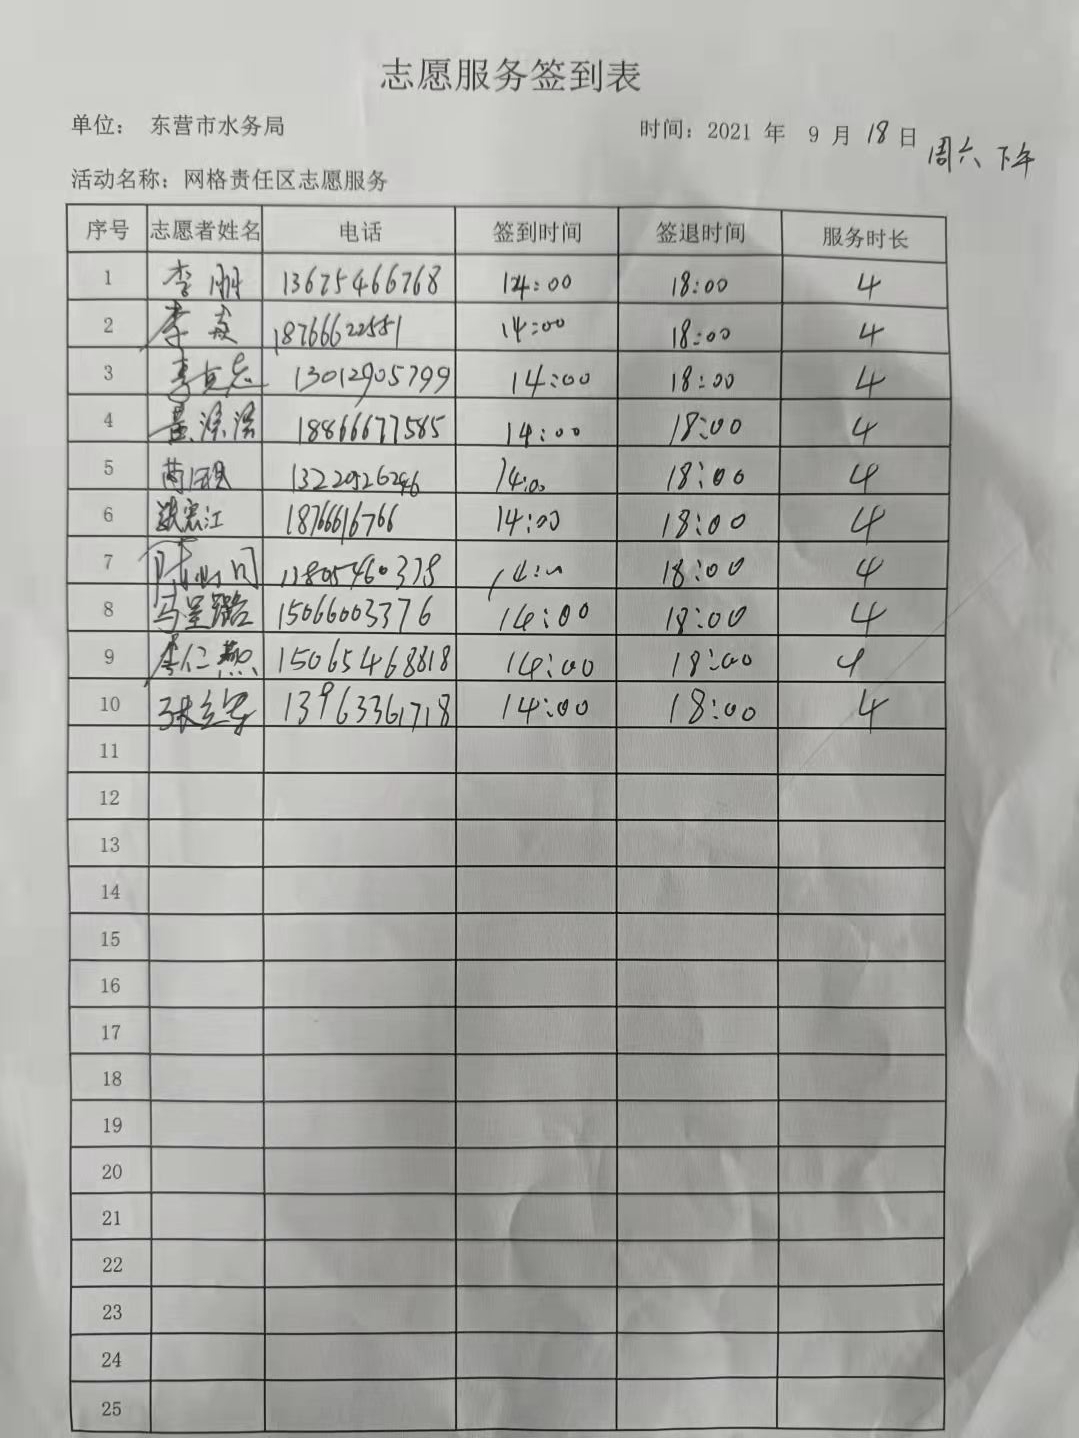 志愿服务签到表
单位： 东营市水务局
时间：2021 年 9 月 18 日 周六 下午
活动名称：网格责任区志愿服务
序号 志愿者姓名 电话 签到时间 签退时间 服务时长
1 李 13675466768 14:00 18:00 4
2 李 18766622551 14:00 18:00 4
3 李 13012905799 14:00 18:00 4
4 18866677585 14:00 18:00 4
5 14:00 18:00 4
6 江 18766616766 14:00 18:00 4
7 18:00 4
8 马 15066003376 14:00 18:00 4
9 李仁燕 15065468818 14:00 18:00 4
10 张 13963361718 14:00 18:00 4
11
12
13
14
15
16
17
18
19
20
21
22
23
24
25